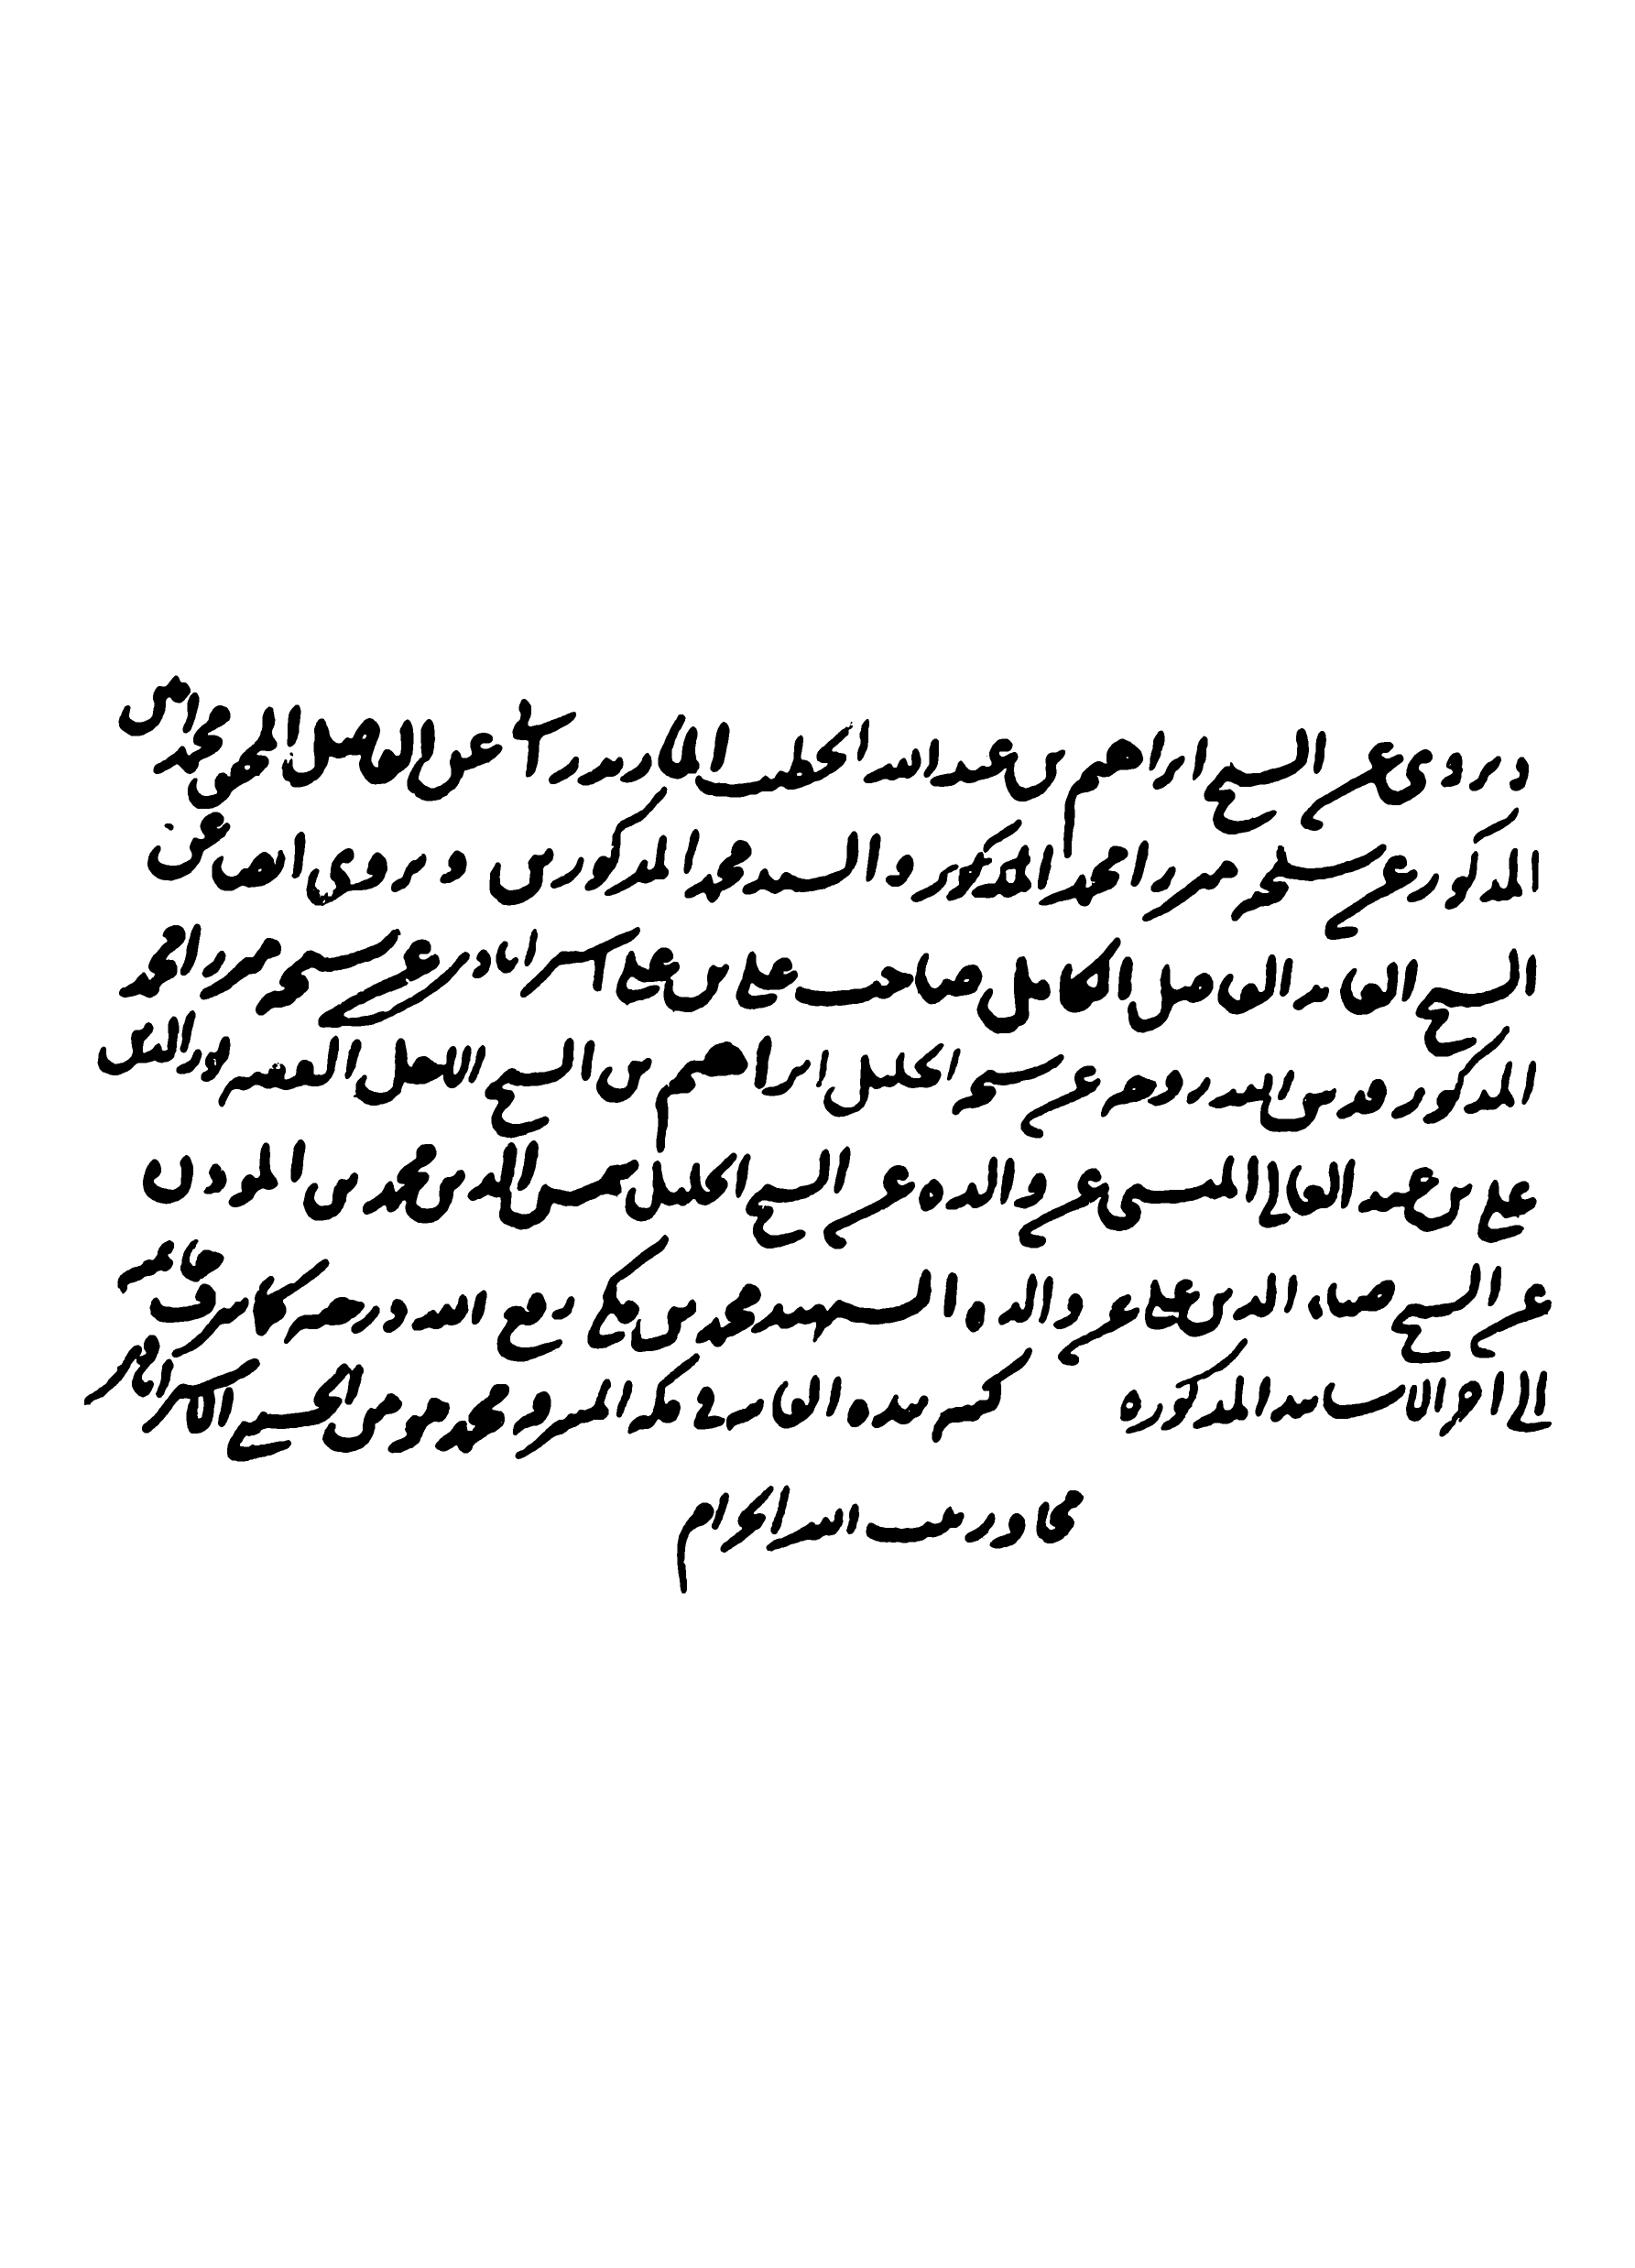 و يروي عن الشيخ ابراهيم بن عبد الله الخطيب المازندراني عن الفاضل المحقق محمد امين
المذكور عن شيخه ميرزا محمد المذكور و السيد محمد المذكورين و يروي ايضا عن
الشيخ العابد الفاضل الكامل صاحب علي بن علي استرابادي عن شيخه ميرزا محمد
المذكور قدس الله روحه عن شيخه الجليل ابراهيم بن الشيخ الاجل الفقيه نور الدين
علي بن عبد العالي الميسي عن والده عن الشيخ الجليل شمس الدين محمد بن المؤذن
عن الشيخ ضياء الدين علي عن والده الشهيد محمد بن مكي رفع الله درجته كما شرف خاتمته
الى اخر الاسانيد المذكورة كتبه بيده الفانية في مكة المشرفة محمد مؤمن الحسيني الاسترابادي
مجاور بيت الله الحرام